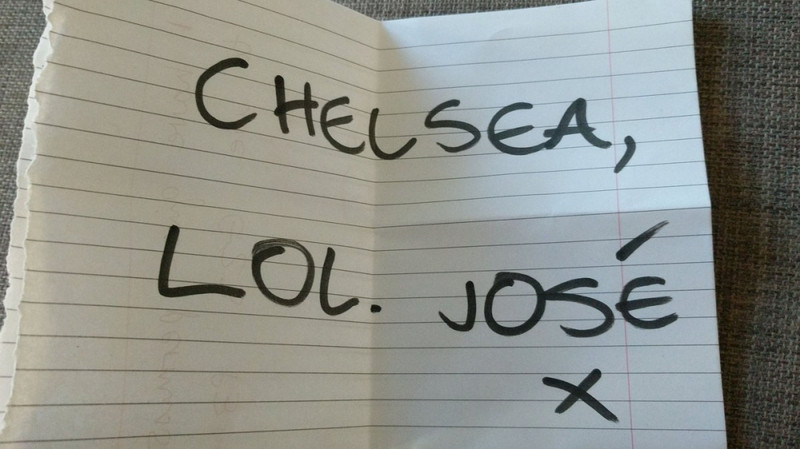 CHELSEA,
LOL. JOSÉ
X